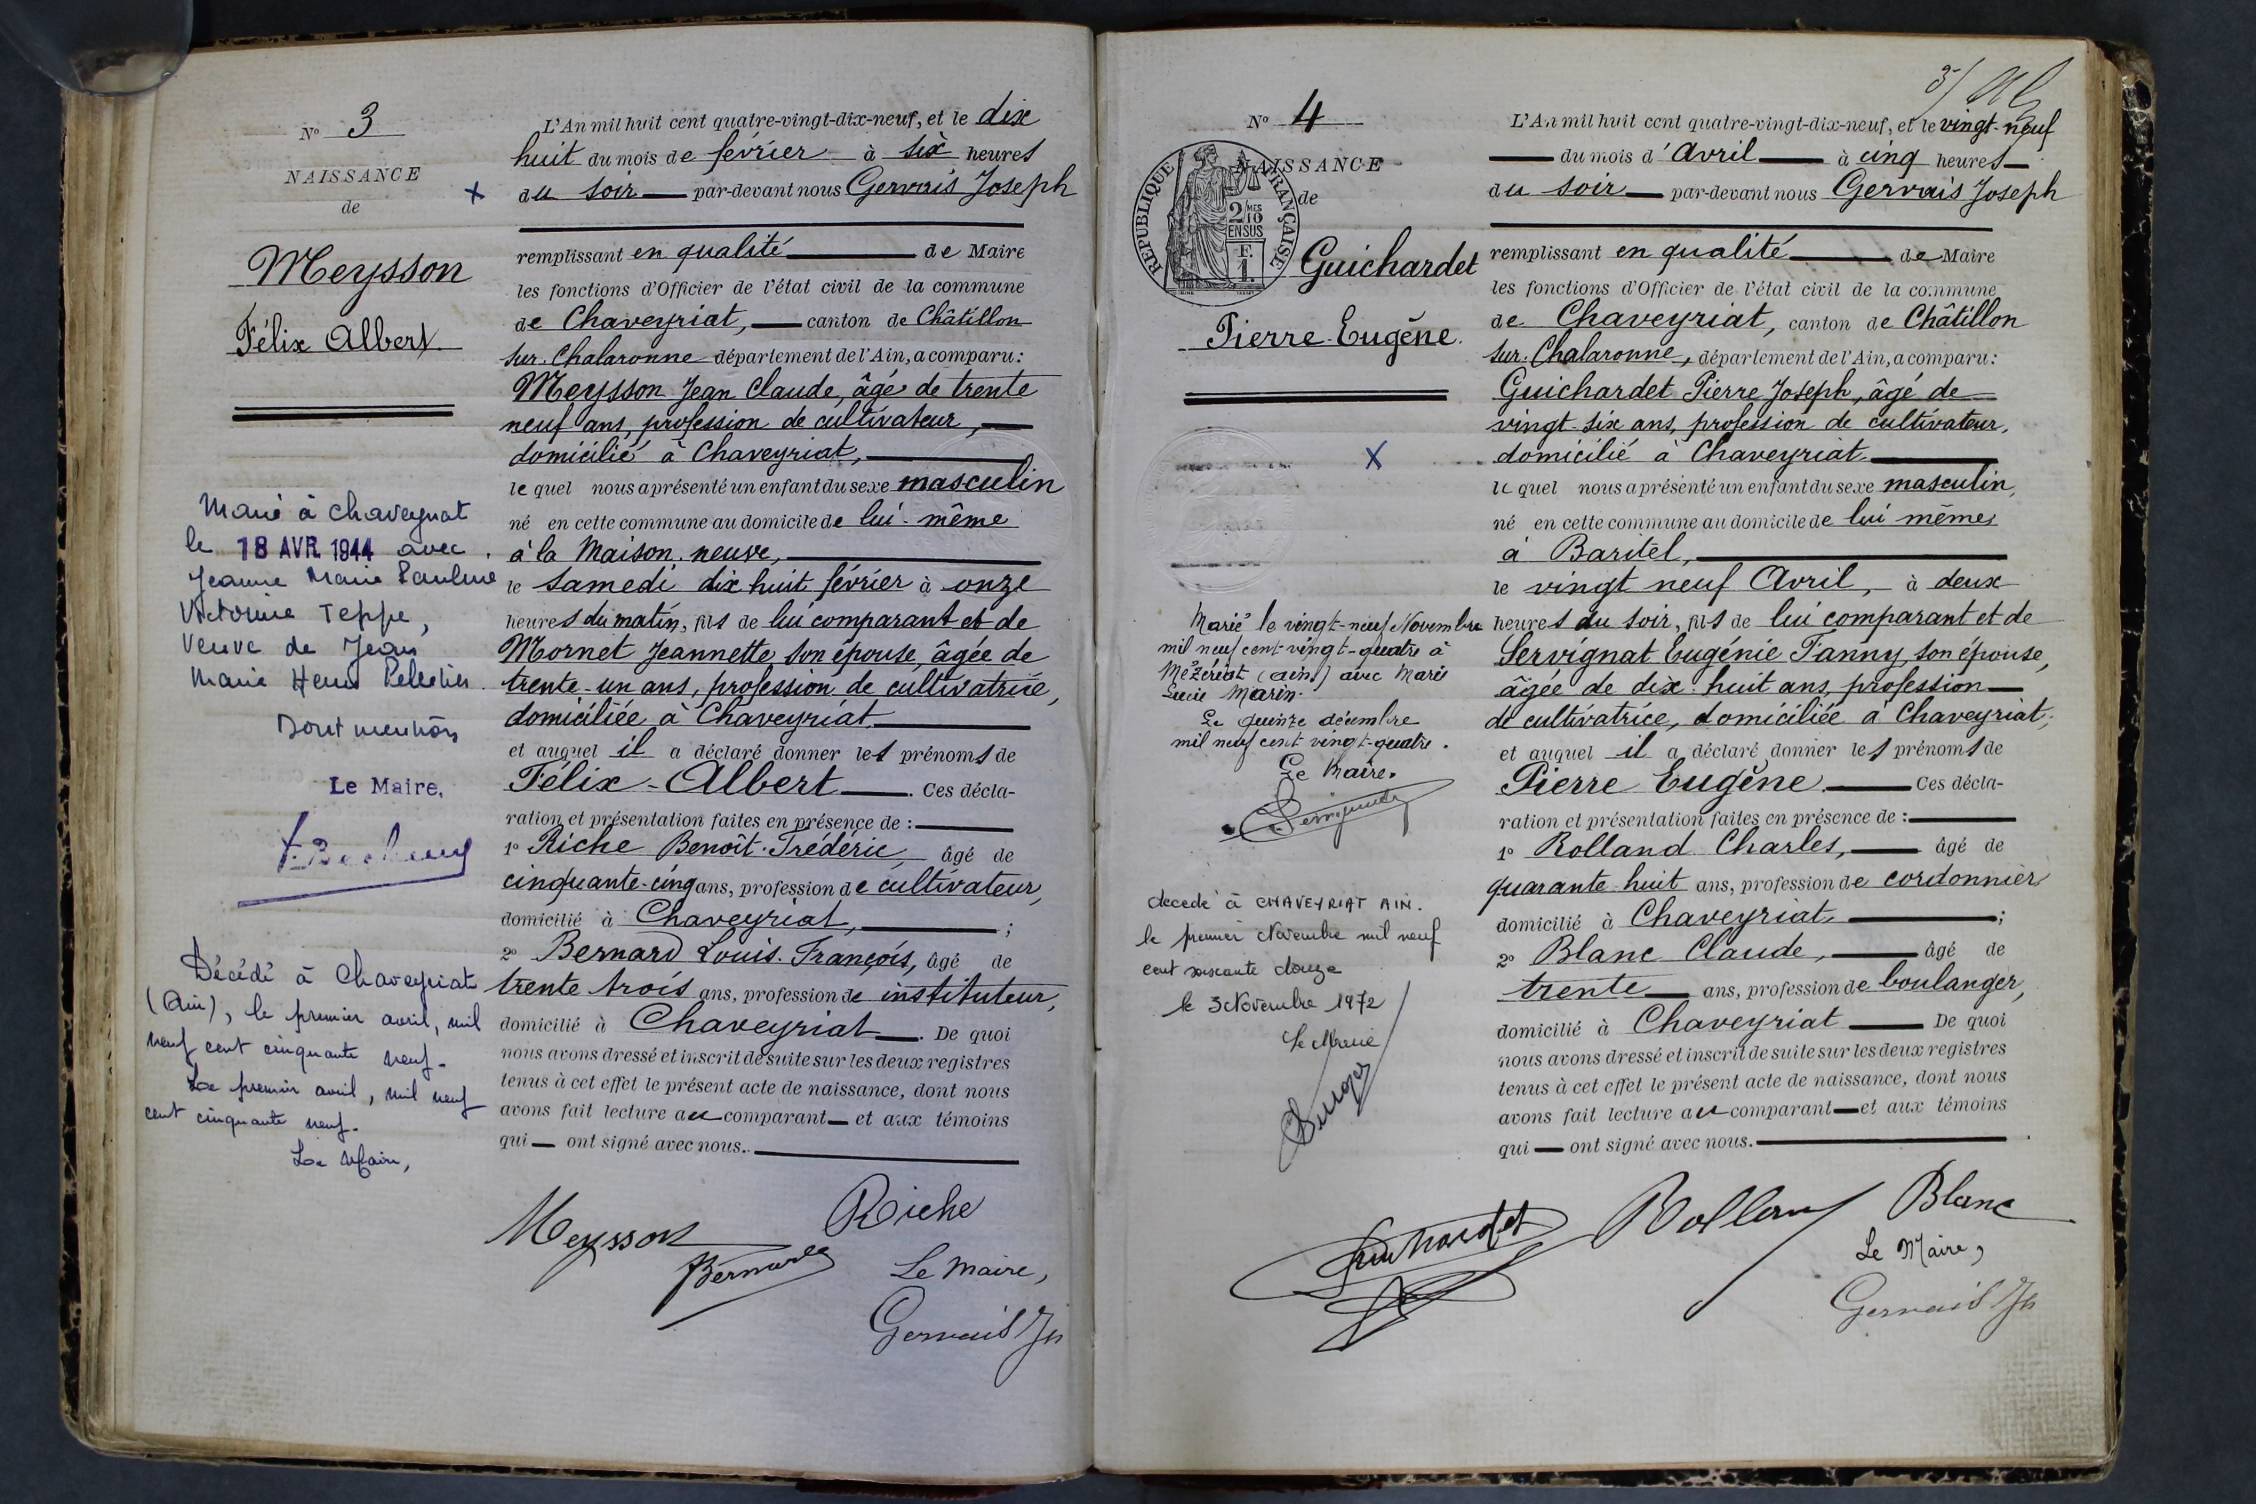 N° 3
NAISSANCE
de
Meysson
Félix Albert
Marié à Chaveyriat
le 18 AVR. 1944 avec
Jeanne Marie Pauline
Victorine Teppe,
Veuve de Jean
Marie Henri Pelletier.
Dont mention
Le Maire,
Décédé à Chaveyriat
(Ain), le premier avril, mil
neuf cent cinquante neuf.
Le premier avril, mil neuf
cent cinquante neuf.
Le Maire,
L'An mil huit cent quatre-vingt-dix-neuf, et le dix
huit du mois de février à six heures
du soir par-devant nous Gervais Joseph
remplissant en qualité de Maire
les fonctions d'Officier de l'état civil de la commune
de Chaveyriat, canton de Châtillon
sur. Chalaronne département de l'Ain, a comparu:
Meysson Jean Claude, âgé de trente
neuf ans, profession de cultivateur,
domicilié à Chaveyriat,
le quel nous a présenté un enfant du sexe masculin
né en cette commune au domicile de lui-même
à la Maison neuve,
le samedi dix huit février à onze
heures du matin, fils de lui comparant et de
Mornet Jeannette son épouse, âgée de
trente-un ans, profession de cultivatrice,
domiciliée à Chaveyriat
et auquel il a déclaré donner les prénoms de
Félix-Albert. Ces décla-
ration et présentation faites en présence de :
1° Riche Benoît-Frédéric, âgé de
cinquante-cinq ans, profession de cultivateur,
domicilié à Chaveyriat, ;
2° Bernard Louis-François, âgé de
trente trois ans, profession de instituteur,
domicilié à Chaveyriat. De quoi
nous avons dressé et inscrit de suite sur les deux registres
tenus à cet effet le présent acte de naissance, dont nous
avons fait lecture au comparant et aux témoins
qui ont signé avec nous.
Meysson Riche
Bernard Le Maire,
Gervais Jh
3/
N° 4
NAISSANCE
de
RÉPUBLIQUE FRANÇAISE
2/10 MES
EN SUS
F.
1.
Guichardet
Pierre-Eugène.
Marié le vingt-neuf Novembre
mil neuf cent vingt-quatre à
Mézériat (Ain) avec Marie
Lucie Marin.
Le quinze décembre
mil neuf cent vingt-quatre.
Le Maire.
decedé à CHAVEYRIAT AIN.
le premier Novembre mil neuf
cent soixante douze
le 3 Novembre 1972
Le Maire
L'An mil huit cent quatre-vingt-dix-neuf, et le vingt-neuf
du mois d'Avril à cinq heures
du soir par-devant nous Gervais Joseph
remplissant en qualité de Maire
les fonctions d'Officier de l'état civil de la commune
de Chaveyriat, canton de Châtillon
sur. Chalaronne, département de l'Ain, a comparu:
Guichardet Pierre Joseph, âgé de
vingt-six ans, profession de cultivateur,
domicilié à Chaveyriat
le quel nous a présenté un enfant du sexe masculin,
né en cette commune au domicile de lui même,
à Baritel,
le vingt neuf Avril, à deux
heures du soir, fils de lui comparant et de
Servignat Eugénie Fanny, son épouse,
âgée de dix-huit ans, profession
de cultivatrice, domiciliée à Chaveyriat,
et auquel il a déclaré donner les prénoms de
Pierre Eugène. Ces décla-
ration et présentation faites en présence de :
1° Rolland Charles, âgé de
quarante-huit ans, profession de cordonnier
domicilié à Chaveyriat, ;
2° Blanc Claude, âgé de
trente ans, profession de boulanger,
domicilié à Chaveyriat De quoi
nous avons dressé et inscrit de suite sur les deux registres
tenus à cet effet le présent acte de naissance, dont nous
avons fait lecture au comparant et aux témoins
qui ont signé avec nous.
Guichardet Rolland Blanc
Le Maire,
Gervais Jh